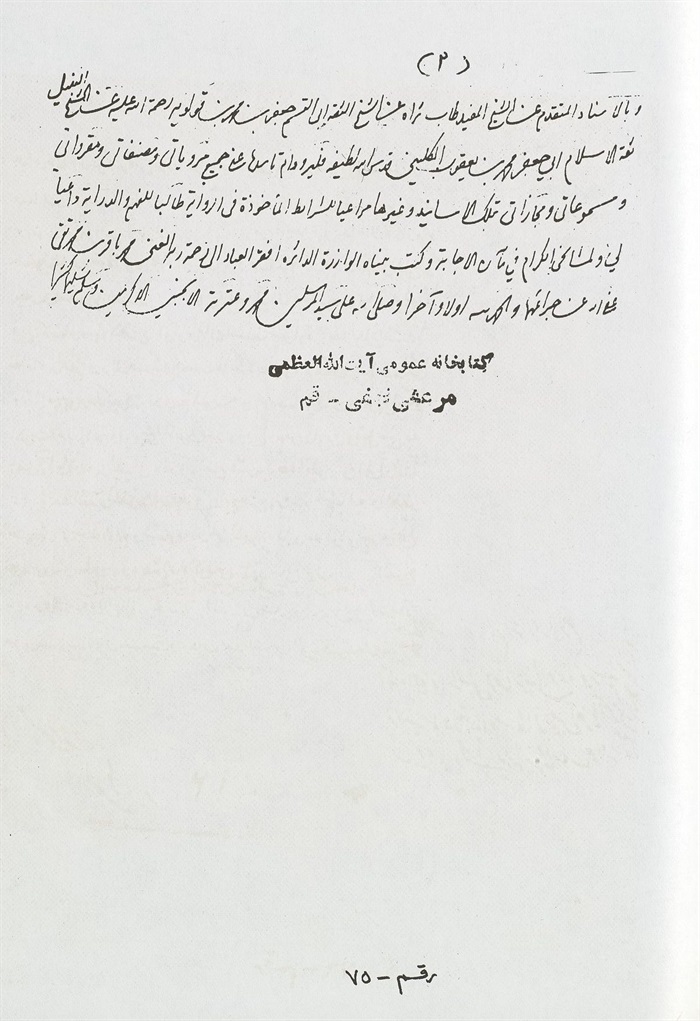 (٣)
و بالاسناد المتقدم عن الشيخ المفيد طاب ثراه عن الشيخ الثقة ابي القسم جعفر بن محمد بن قولويه رحمة الله عليه عن الشيخ النبيل
ثقة الاسلام ابي جعفر محمد بن يعقوب الكليني قدس الله لطيفه فليرو دام تاييده عني جميع مروياتي و مصنفاتي و مقرواتي
و مسموعاتي و مجازاتي بتلك الاسانيد و غيرها مراعيا للشرايط الماخوذة في الرواية طالبا للفهم و الدراية داعيا
لي و لمشايخي الكرام في مآن الاجابة و كتب بيمناه الوازرة الداثرة افقر العباد الى رحمة ربه الغني محمد باقر بن محمد تقي
عفي الله عن جرائمهما و الحمد لله اولا و آخرا و صلى الله على سيد المرسلين محمد و عترته الاكرمين و سلم تسليما كثيرا
كتابخانه عمومی آیت الله العظمی
مرعشی نجفی - قم
رقم - ٧٥